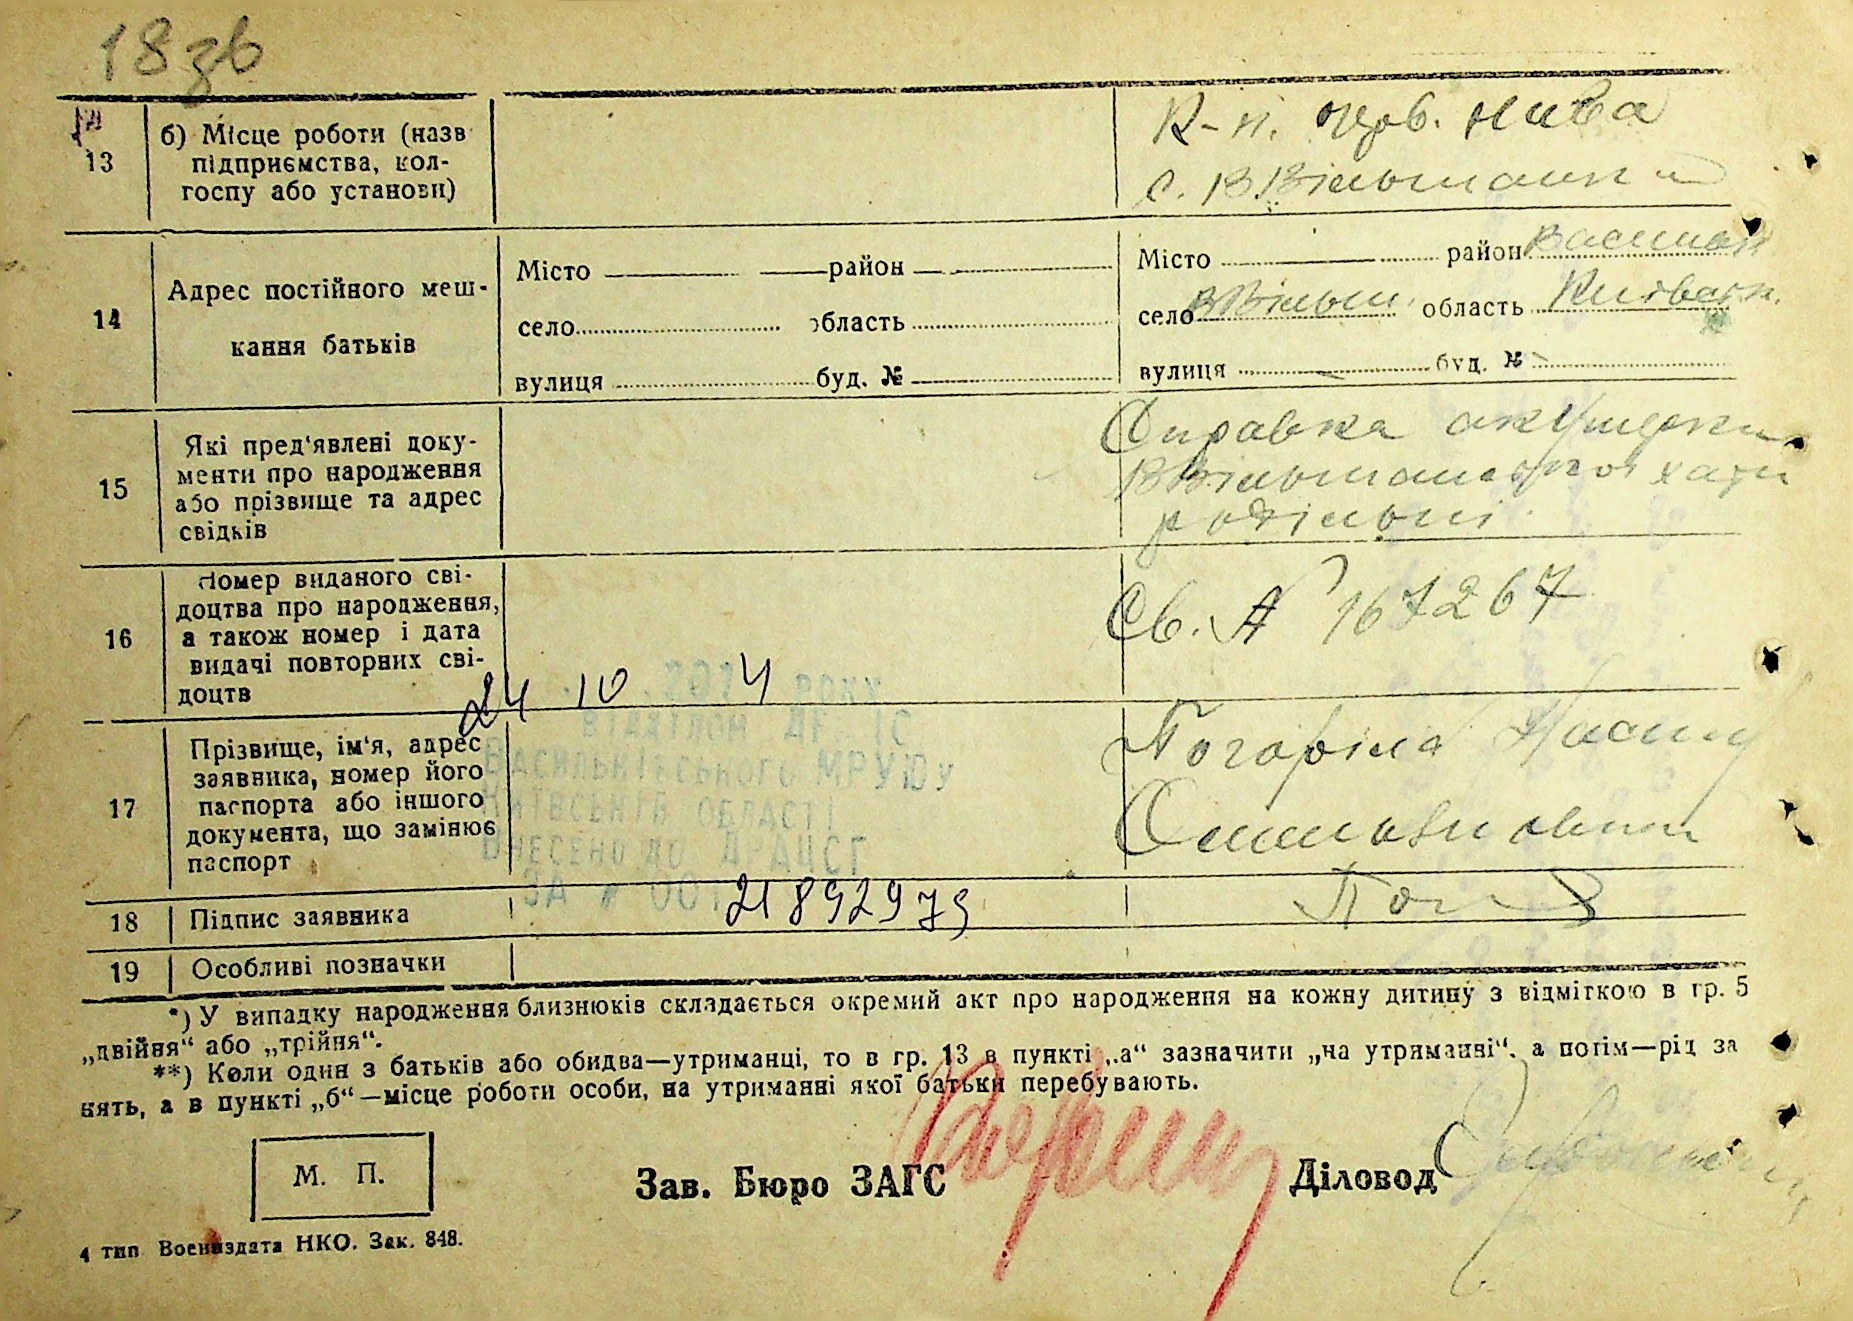 18зв
13
б) Місце роботи (назв
підприємства, кол-
госпу або установи)
К-п. Черв. Нива
с. В Вільшанка
14
Адрес постійного меш-
кання батьків
Місто район
село область
вулиця буд. №
Місто район Васильк
село В Вільш. область Київськ.
вулиця буд. №
15
Які пред'явлені доку-
менти про народження
або прізвище та адрес
свідків
Справка акушерки
В Вільшанської хати
родільні
16
Номер виданого сві-
доцтва про народження,
а також номер і дата
видачі повторних сві-
доцтв
Св. № 167267
24 10 2014 року
відділом
Васильківського МРУЮ у
Київській області
внесено до ДРАЦСГ
за № 00121892979
17
Прізвище, ім'я, адрес
заявника, номер його
паспорта або іншого
документа, що замінює
паспорт
Погоріла
18
Підпис заявника
19
Особливі позначки
*) У випадку народження близнюків складається окремий акт про народження на кожну дитину з відміткою в гр. 5
„двійня“ або „трійня“.
**) Коли один з батьків або обидва—утриманці, то в гр. 13 в пункті „а“ зазначити „на утриманні“, а потім—рід за
нять, а в пункті „б“—місце роботи особи, на утриманні якої батьки перебувають.
М. П.
Зав. Бюро ЗАГС
Діловод
4 тип Воениздата НКО. Зак. 848.